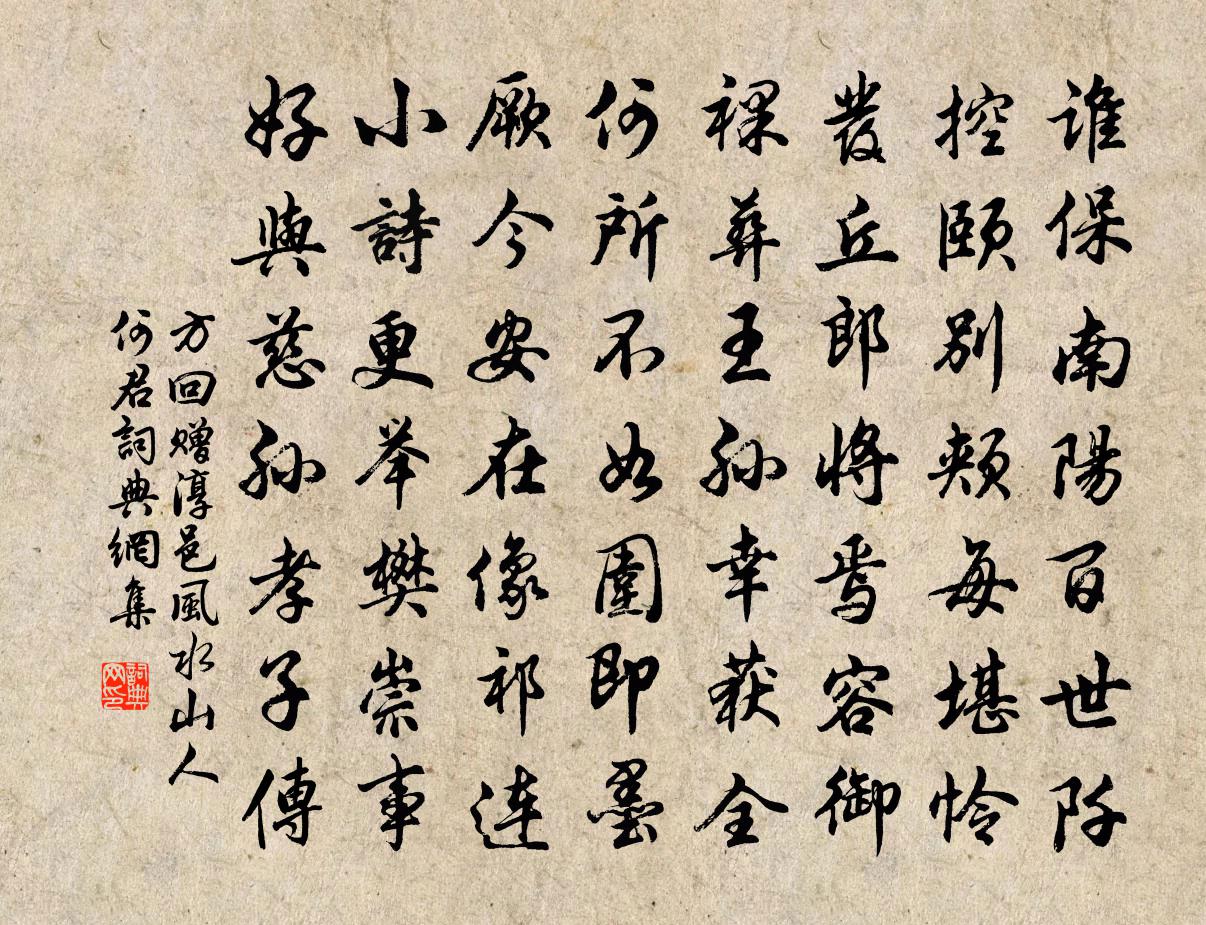 誰保南陽百世阡
控頤別頰每堪憐
發丘郎將焉容御
裸葬王孫幸获全
何所不如圍即墨
厥今安在像祁連
小詩更举樊崇事
好與慈孙孝子傳
方回赠淳邑風水山人
何君詞典網集
詞典网印